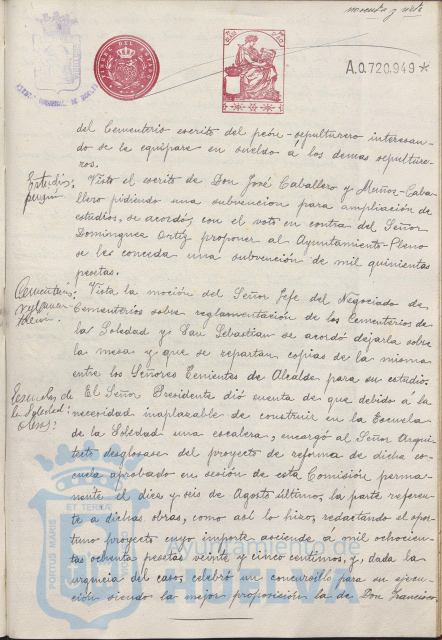 noventa y siete
A.0.720.949*
del Cementerio escrito del peón-sepulturero interesan-
do se le equipare en sueldo á los demas sepulture-
ros.
Estudios: Visto el escrito de Don José Caballero y Muñoz-Caba-
llero pidiendo una subvencion para ampliación de
estudios, se acordó, con el voto en contra del Señor
Dominguez Ortiz proponer al Ayuntamiento-Pleno
se les conceda una subvención de mil quinientas
pesetas.
Cementerios: Vista la moción del Señor Jefe del Negociado de
Cementerios sobre reglamentación de los Cementerios de
la Soledad y San Sebastian se acordó dejarla sobre
la mesa y que se repartan copias de la misma
entre los Señores Tenientes de Alcalde para su estudio.
Escuelas de El Señor Presidente dió cuenta de que debido á la
la Soledad: necesidad inaplazable de construir en la Escuela
obras: de la Soledad una escalera, encargó al Señor Arqui-
tecto desglosase del proyecto de reforma de dicha es-
cuela aprobado en sesión de esta Comisión perma-
nente el diez y seis de Agosto último, la parte referen-
te a dichas obras, como así lo hizo, redactando el opor-
tuno proyecto cuyo importe asciende a mil ochocien-
tas ochenta pesetas veinte y cinco centimos, y, dada la
urgencia del caso, celebró un concursillo para su ejecu-
ción siendo la mejor proposición la de Don Francisco
PORTUS MARIS ET TERRA
Ayuntamiento de
HUELVA